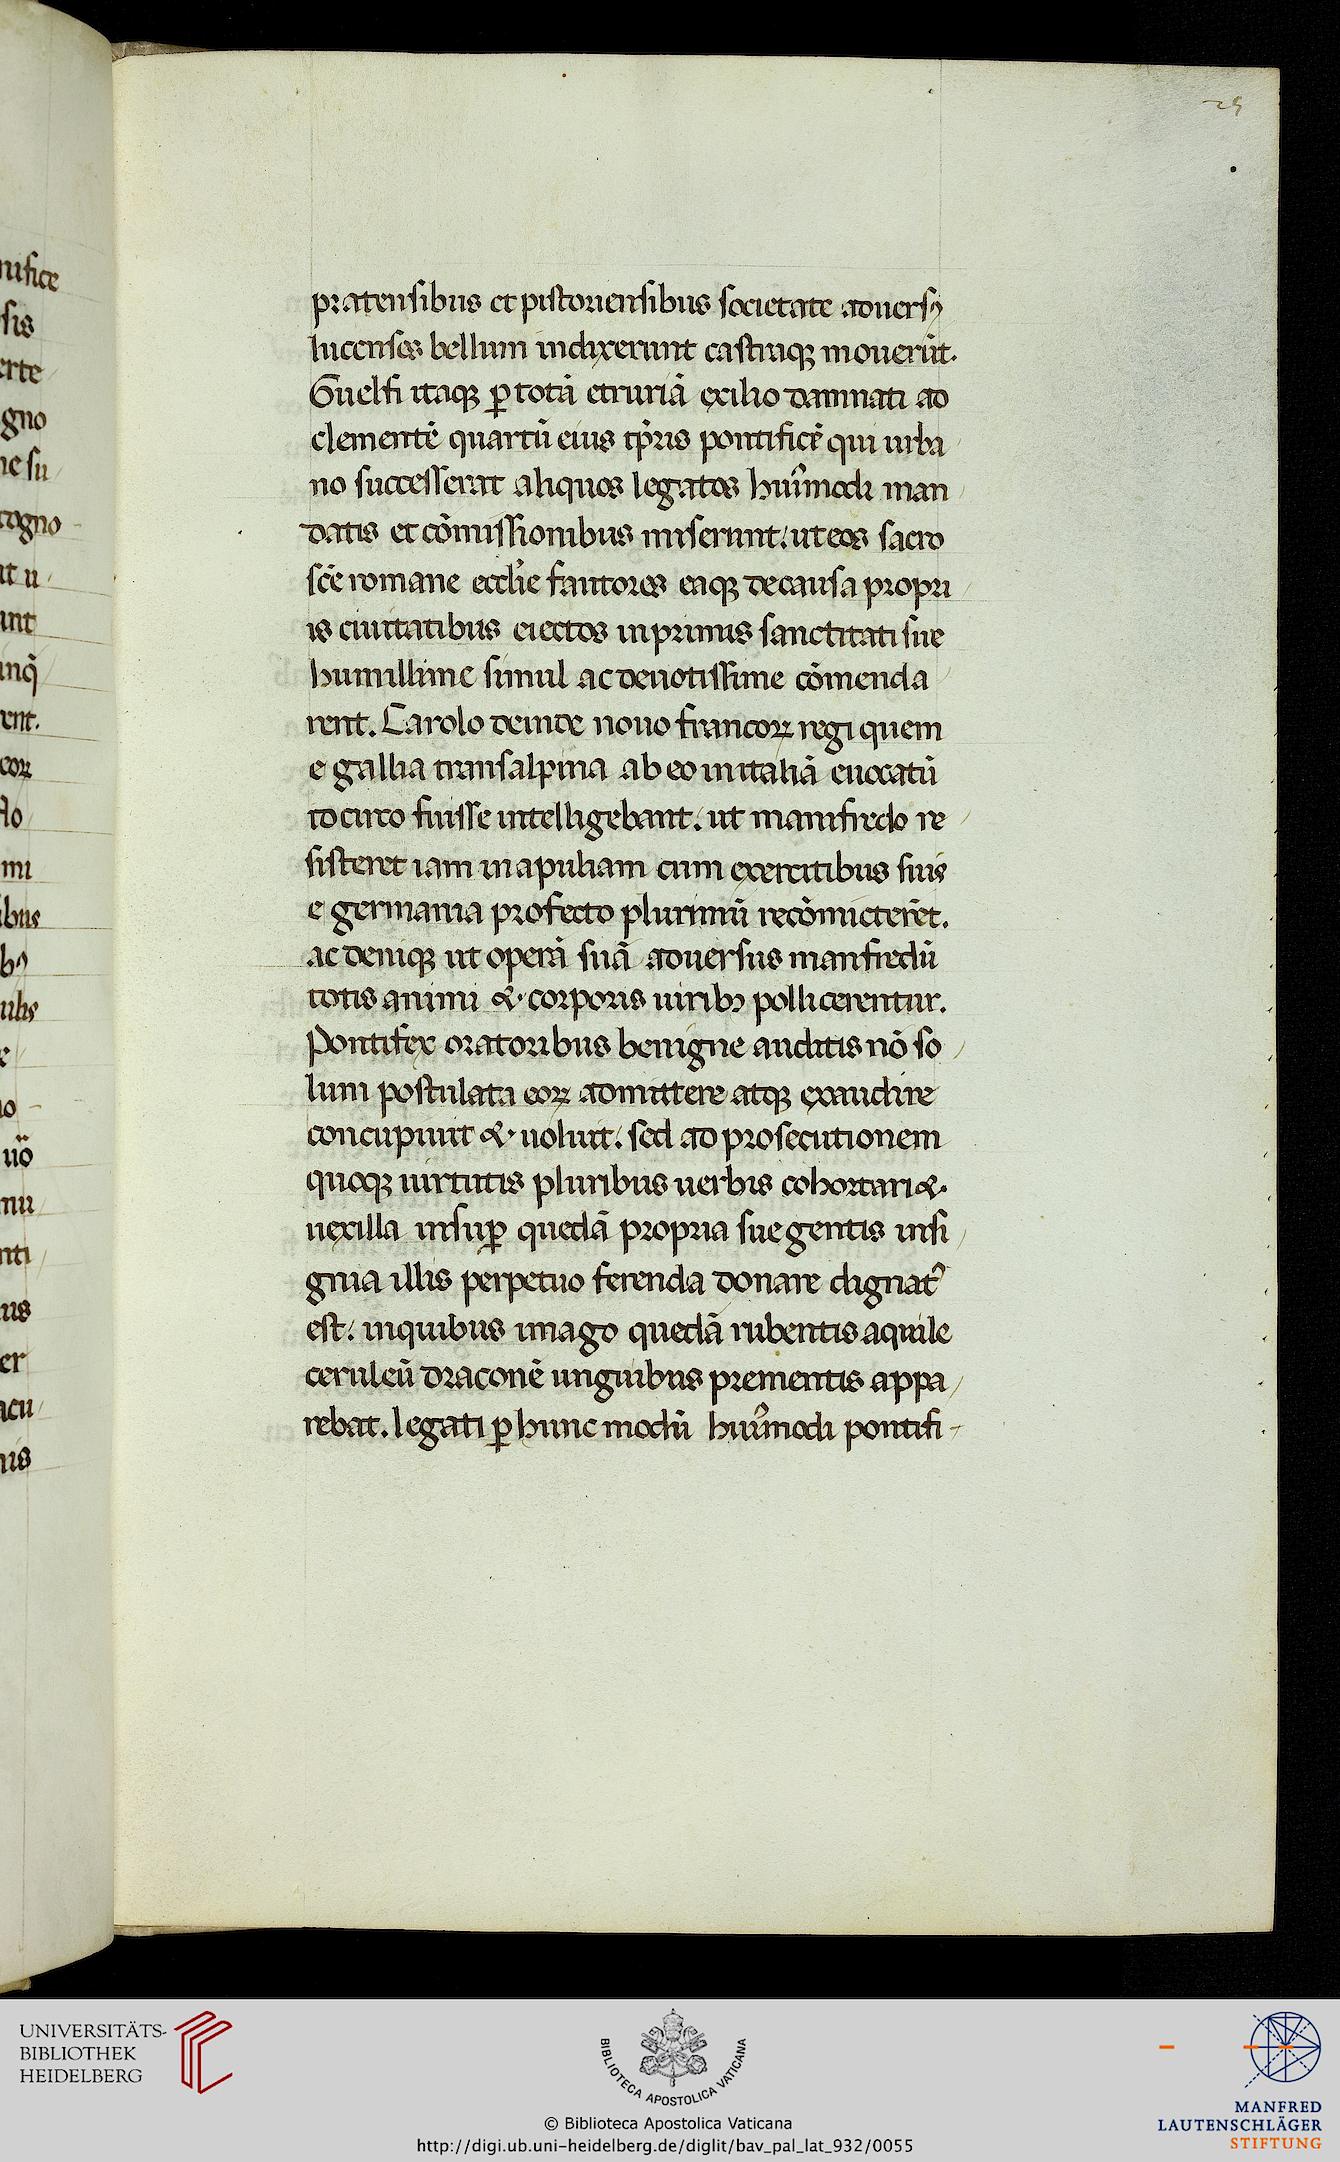 nifice
sis
erte
gno
ne su
cogno
ut u
unt
unq̃
rent.
eoꝝ
flo
mi
ibus
bꝰ
uilis
no
uõ
mu
nti
us
er
acu
nis
25
pratensibus et pistoriensibus societate aduersꝰ
lucenses bellum indixerunt castraqꝫ mouerũt.
Guelfi itaqꝫ ꝑ totã etruriã exilio damnati ad
clementẽ quartũ eius tp̃ris pontificẽ qui urba
no successerat aliquos legatos huiꝰmodi man
datis et cõmissionibus miserunt. ut eos sacro
scẽ romane eccłie fautores eaqꝫ de causa propri
is ciuitatibus eiectos inprimis sanctitati sue
humillime simul ac deuotissime cõmenda
rent. Carolo deinde nouo francoꝝ regi quem
e gallia transalpina ab eo in italiã euocatũ
idcirco fuisse intelligebant. ut manfredo re
sisteret iam in apuliam cum exercitibus suis
e germania profecto plurimũ recõmicterẽt.
ac deniqꝫ ut operã suã aduersus manfredũ
totis animi & corporis uiribꝫ pollicerentur.
Pontifex oratoribus benigne auditis nõ so
lum postulata eoꝝ admittere atqꝫ exaudire
concupiuit & uoluit. sed ad prosecutionem
quoqꝫ uirtutis pluribus uerbis cohortari &
uexilla insuꝑ quedã propria sue gentis insi
gnia illis perpetuo ferenda donare dignatꝰ
est. in quibus imago quedã rubentis aquile
ceruleũ draconẽ unguibus prementis appa
rebat. legati ꝑ hunc modũ huiꝰmodi pontifi
UNIVERSITÄTS-
BIBLIOTHEK
HEIDELBERG
BIBLIOTECA APOSTOLICA VATICANA
© Biblioteca Apostolica Vaticana
http://digi.ub.uni-heidelberg.de/diglit/bav_pal_lat_932/0055
MANFRED
LAUTENSCHLÄGER
STIFTUNG